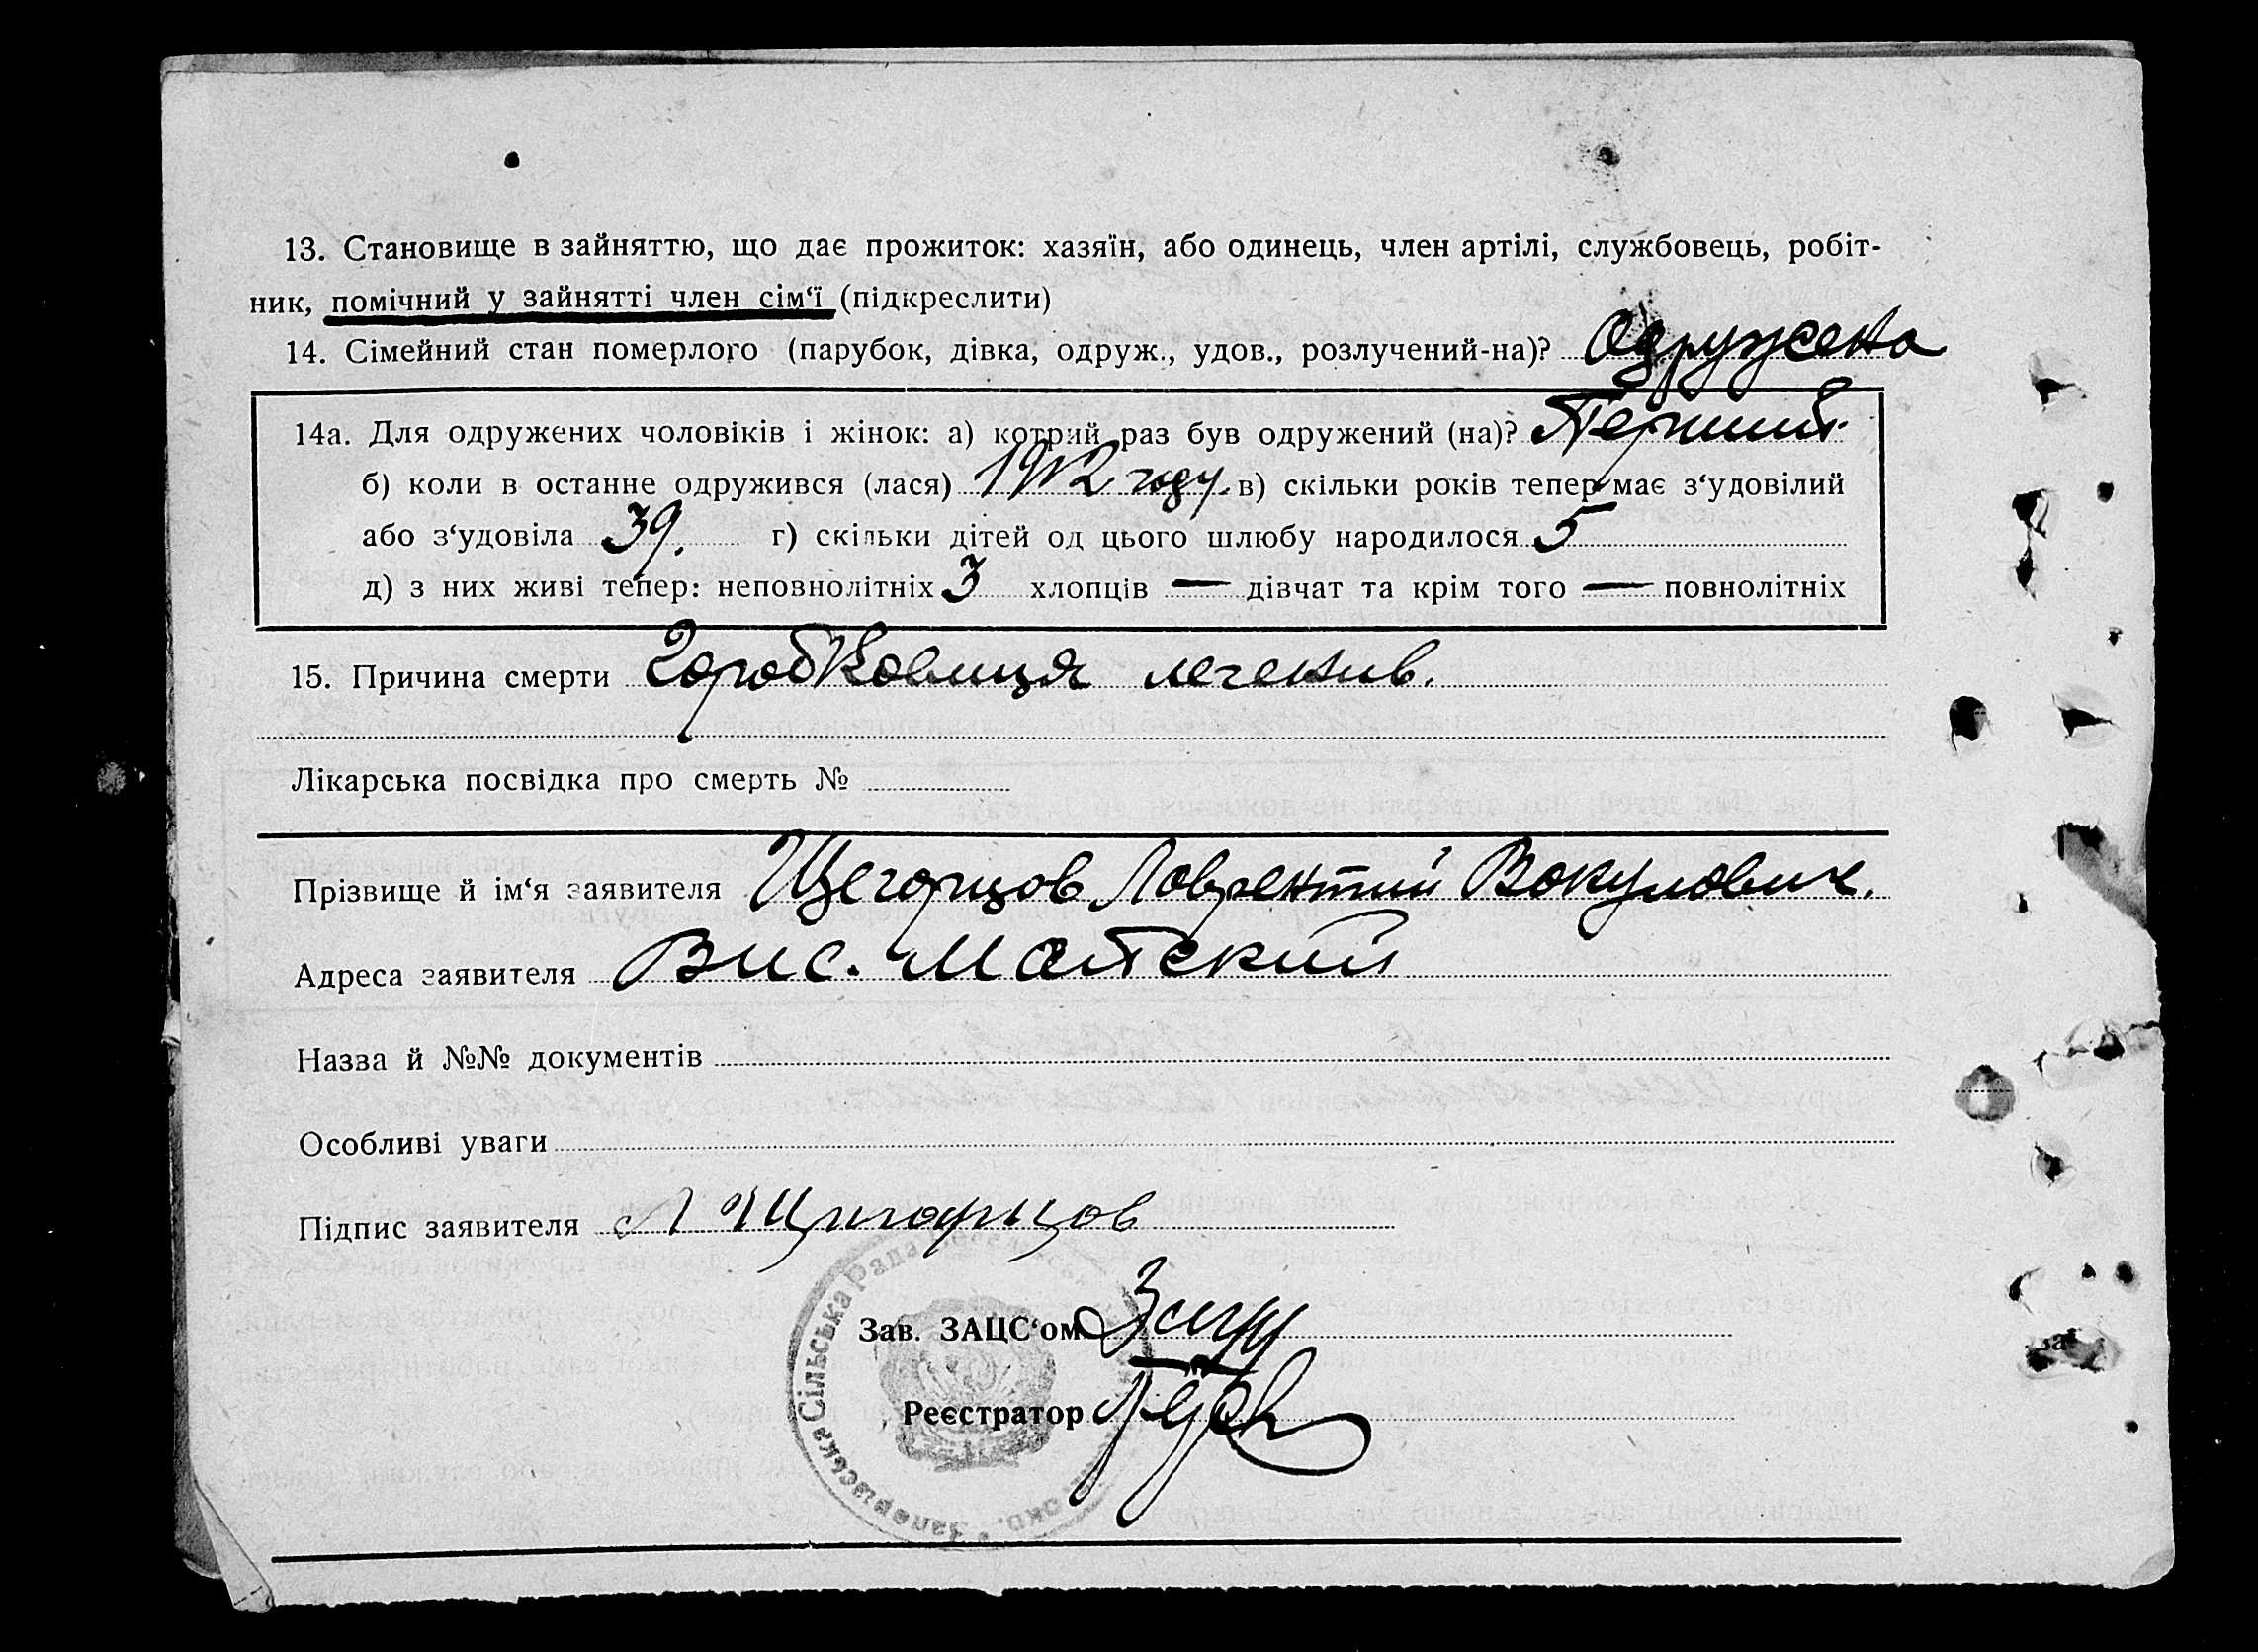 13. Становище в зайняттю, що дає прожиток: хазяїн, або одинець, член артілі, службовець, робіт-
ник, помічний у зайнятті член сім‘ї (підкреслити)
14. Сімейний стан померлого (парубок, дівка, одруж., удов., розлучений-на)? Одружена
14а. Для одружених чоловіків і жінок: а) котрий раз був одружений (на)? Перший
б) коли в останне одружився (лася) 1912 году. в) скільки років тепер має з‘удовілий
або з‘удовіла 39. г) скільки дітей од цього шлюбу народилося 5
д) з них живі тепер: неповнолітніх 3 хлопців — дівчат та крім того — повнолітніх
15. Причина смерти Горобковиця легенив.
Лікарська посвідка про смерть №
Прізвище й ім‘я заявителя Щегорцов Лаврентий Вокулович.
Адреса заявителя Вис. Матский
Назва й №№ документів
Особливі уваги
Підпис заявителя Л Щигарцов
Зав. ЗАЦС‘ом
Реєстратор
Сільська Рада